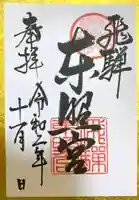 飛騨
東照宮
奉拝
令和二年
十一月 日